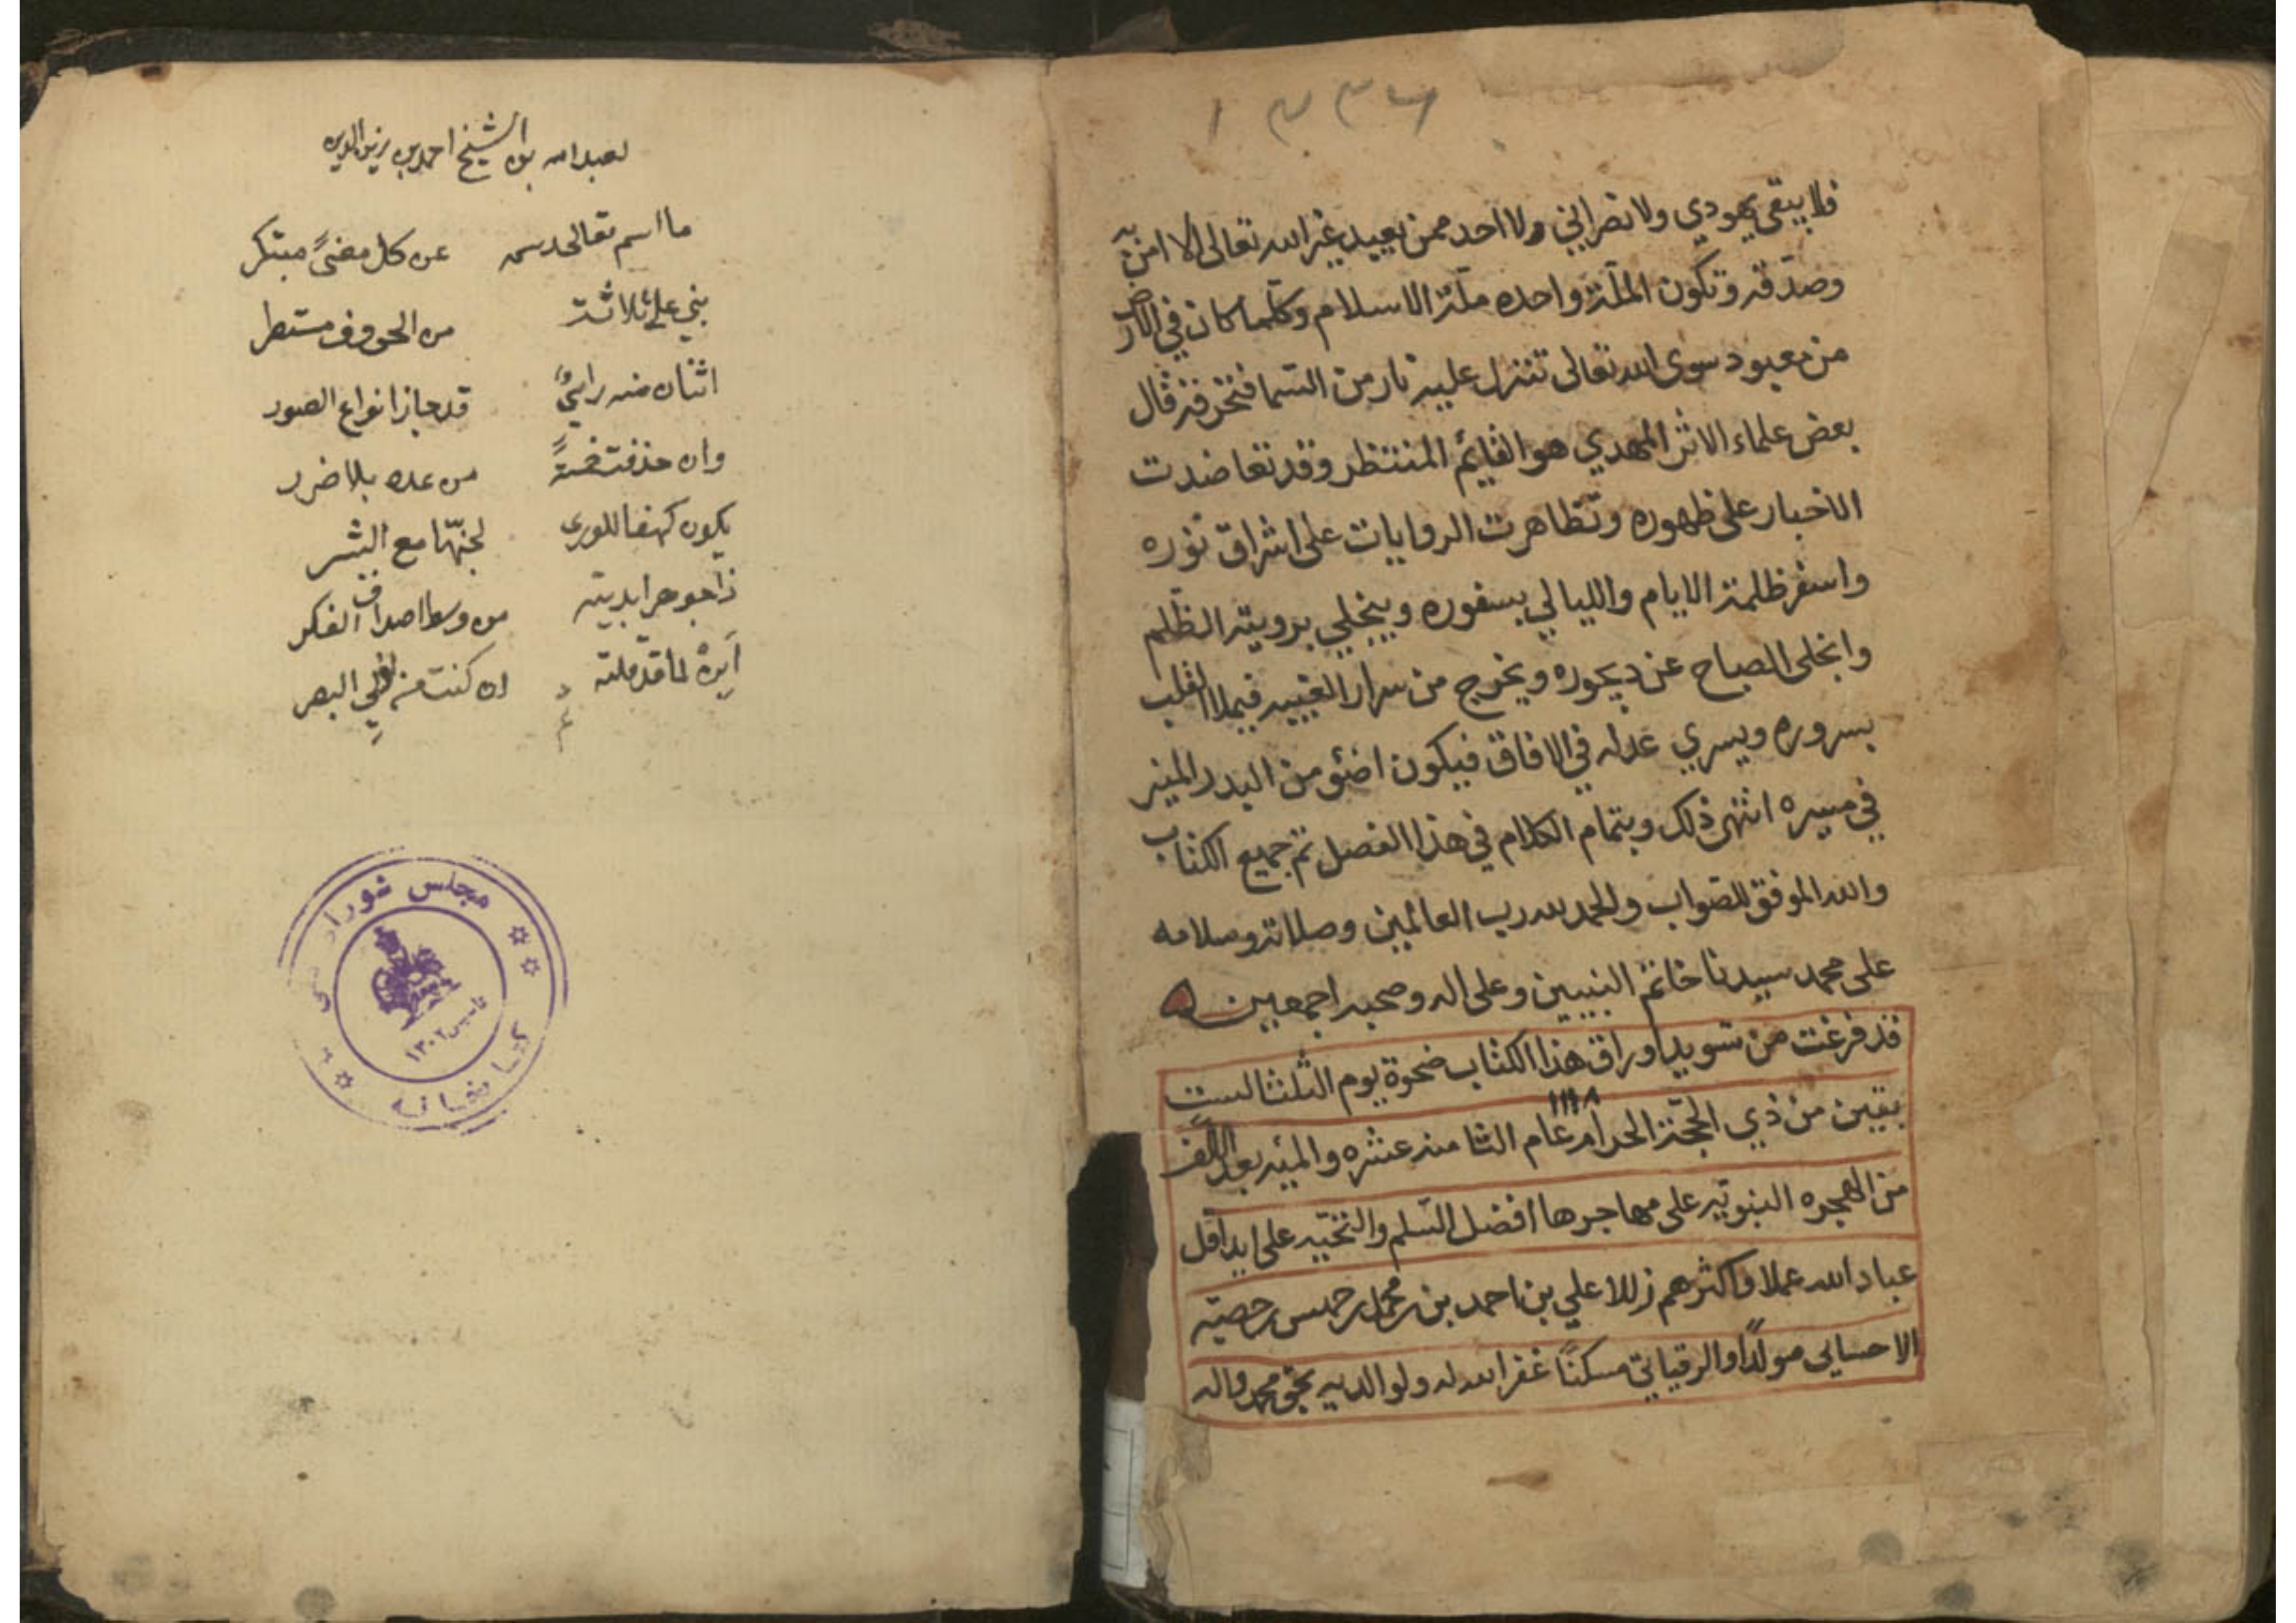 ١٣٣٦
فلا يبقى يهودي ولا نصراني ولا احد ممن يعبد غير الله تعالى الا امن به
وصدقه وتكون الملة واحده ملة الاسلام وكلما كان في الارض
من معبود سوى الله تعالى تنزل عليه نار من السما فتحرقه قال
بعض علماء الاثر المهدي هو القائم المنتظر وقد تعاضدت
الاخبار على ظهوره وتظاهرت الروايات على اشراق نوره
واسفر ظلمة الايام والليالي بسفوره وينجلي برويته الظلم
وانجلى الصباح عن ديجوره ويخرج من سرار الغيبه فيملا القلب
بسروره ويسري عدله في الافاق فيكون اضئو من البدر المنير
في مسيره انتهى ذلك وبتمام الكلام في هذا الفصل تم جميع الكتاب
والله الموفق للصواب والحمد لله رب العالمين وصلاته وسلامه
على محمد سيدنا خاتم النبيين وعلى اله وصحبه اجمعين
قد فرغت من تسويد اوراق هذا الكتاب ضحوة يوم الثلثا لست
١١١٨
بقين من ذي الحجة الحرام عام الثامنه عشره والميه بعد الالف
من الهجره النبويه على مهاجرها افضل السلم والتحيه على يد اقل
عباد الله عملا واكثرهم زللا علي بن احمد بن محمد بن خميس
الاحسايي مولدًا والرقياتي مسكنًا غفر الله له ولوالديه بحق محمد واله
لعبد الله بن الشيخ احمد بن زين الدين
ما اسم تعالى رسمه عن كل معنىً مبتكر
بني على ثلاثة من الحروف مستطر
اثنان منه قد حاز انواع الصور
وان حذفت خمسةً من عده بلا ضرر
يكون كهفا للورى لجنّها مع البشر
ذا جوهر ابديته من وسط اصداف الفكر
ابِنْه لما قد قلته ان كنت من اولي البصر
مجلس شورای ملی
تاسیس ١٣٠٢
کتابخانه